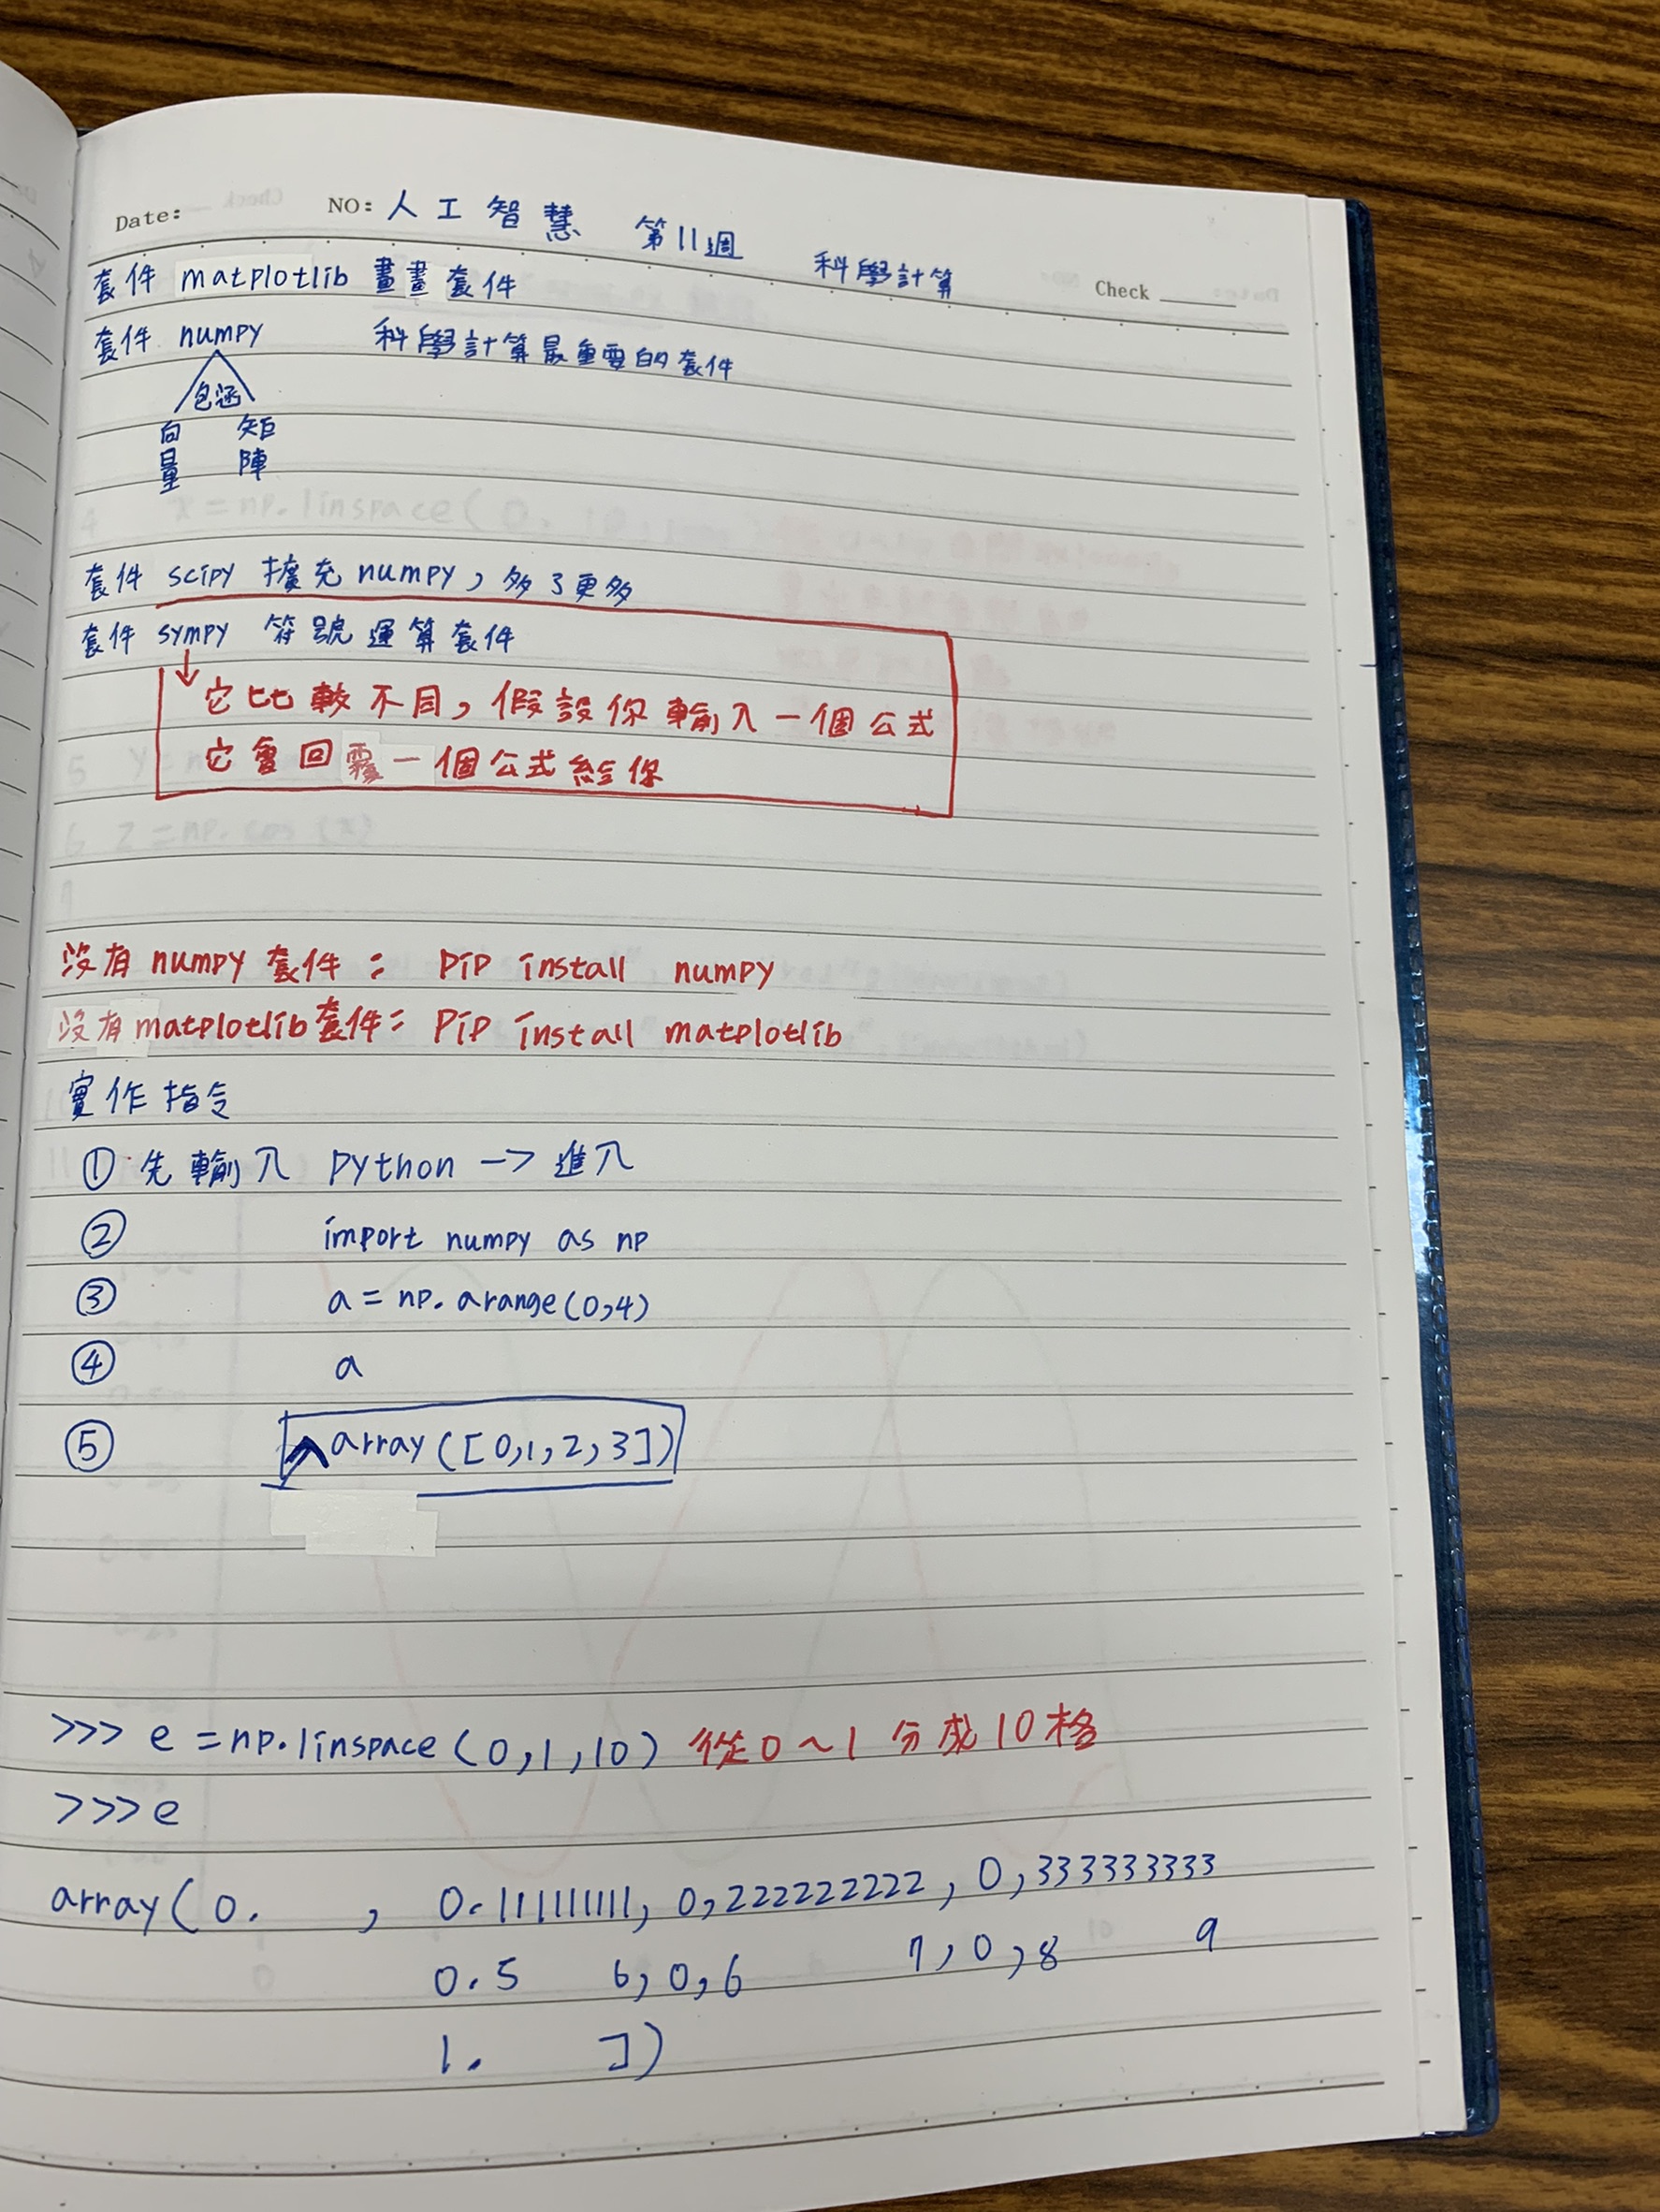 Date: NO: 人工智慧 第11週 科學計算 Check
套件 matplotlib 畫畫套件
套件 numpy 科學計算最重要的套件
包涵
向量 矩陣
套件 scipy 擴充numpy，多了更多
套件 sympy 符號運算套件
它比較不同，假設你輸入一個公式
它會回覆一個公式給你
沒有 numpy 套件： pip install numpy
沒有matplotlib套件： pip install matplotlib
實作指令
① 先輸入 python -> 進入
② import numpy as np
③ a = np.arange(0,4)
④ a
⑤ array([0,1,2,3])
>>> e =np.linspace(0,1,10) 從0~1 分成10格
>>> e
array(0. , 0.111111111, 0,222222222, 0,333333333
0.5 6,0,6 7,0,8 9
1. ])